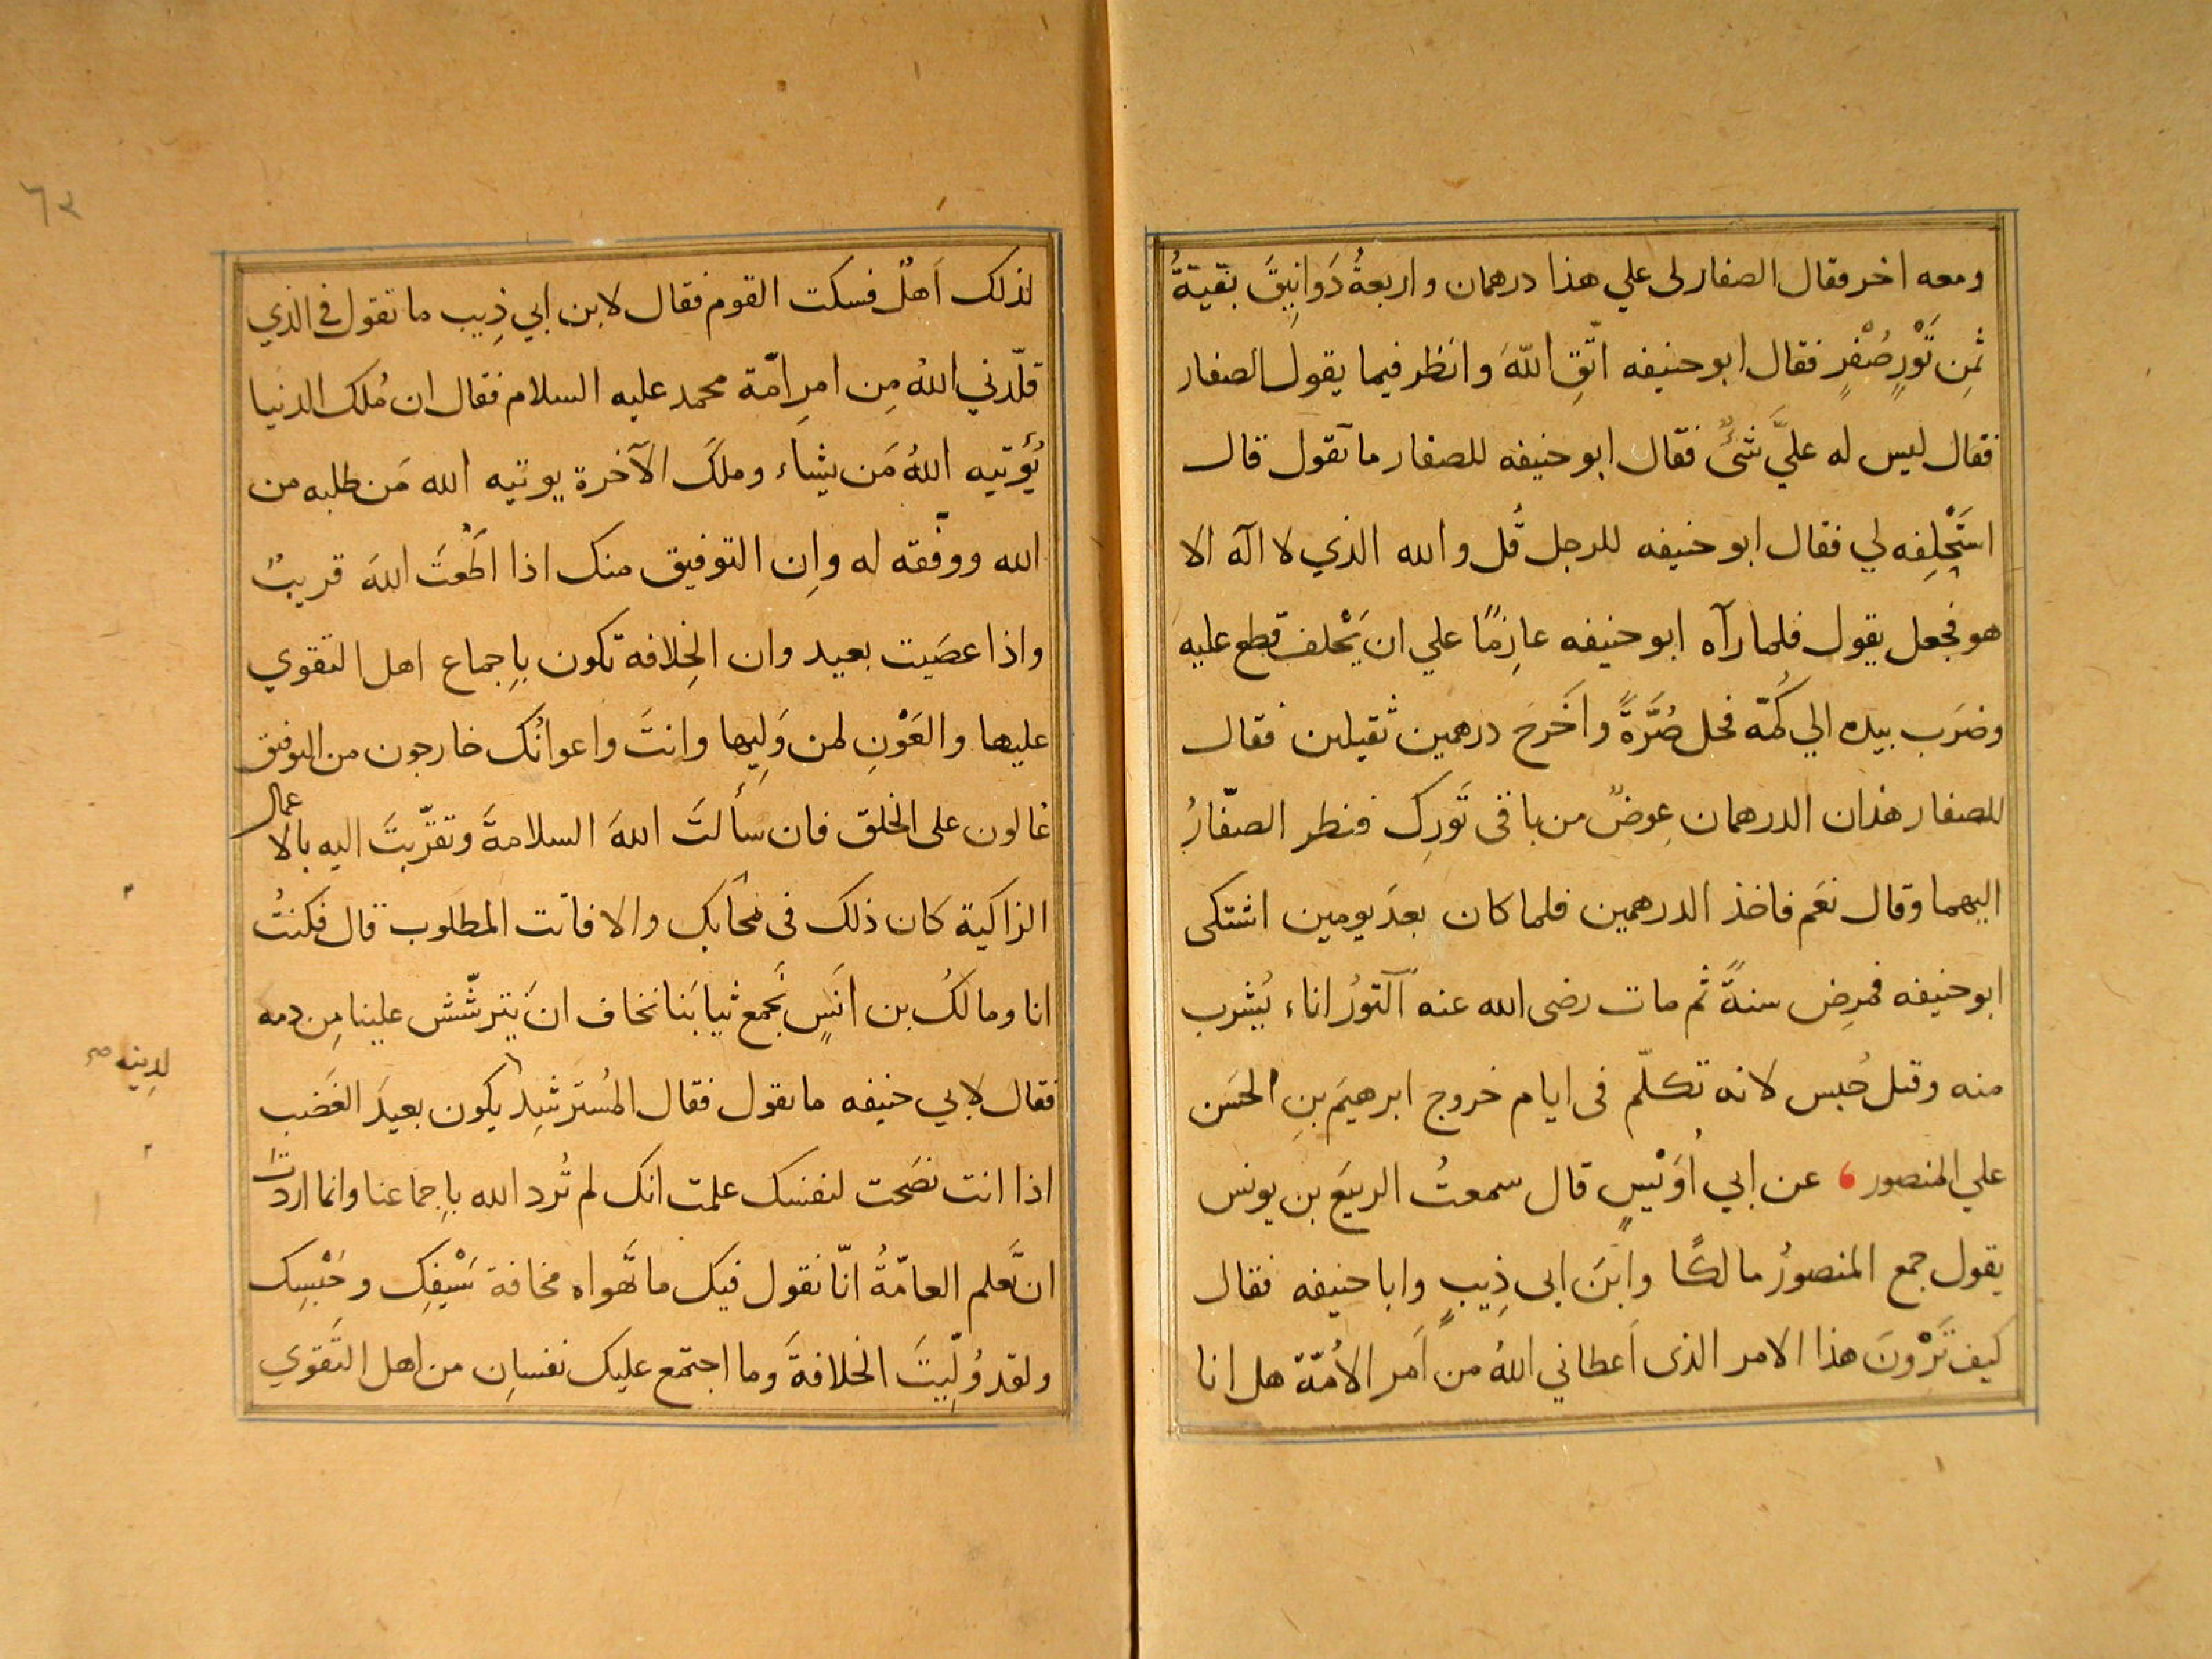 ومعه اخر فقال الصفار لى علي هذا درهمان واربعةُ دَوانِيقَ بقيةُ
ثمنِ تَوْرٍ صُفْرٍ فقال ابو حنيفه اتّقِ اللّهَ وانظر فيما يقول الصفار
فقال ليس له عليَّ شئٌ فقال ابو حنيفه للصفار ما تقول قال
استَحْلِفه لي فقال ابو حنيفه للرجل قُل والله الذي لا اله الا
هو فجعل يقول فلما رآه ابو حنيفه عازِمًا علي ان يَحْلف قطع عليه
وضرَب بيده الي كُمّه فحل صُرَّةً واَخَرجَ درهمين ثقيلين فقال
للصفار هذان الدرهمان عِوضٌ من باقى تَورِك فنظر الصفّارُ
اليهما وقال نعَم فاخذ الدرهمين فلما كان بعدَ يومين اشتكى
ابو حنيفه فمرِض سنةً ثم مات رضى الله عنه اَلتورُ اناء يُشرب
منه وقيل حُبس لانه تكلّم فى ايام خروج ابرهيمَ بنِ الحسَن
علي المنصور ، عن ابي اُوَيْسٍ قال سمعتُ الربيَع بن يونس
يقول جمع المنصورُ مالكًا وابنَ ابى ذِيبٍ وابا حنيفه فقال
كيف تَرْونَ هذا الامر الذى اَعطاني اللهُ من اَمر الاُمّة هل انا
لذلك اَهلٌ فسكت القوم فقال لابن ابي ذِيب ما تقول في الذي
قلّدني اللهُ مِن امرِ امّة محمد عليه السلام فقال ان مُلك الدنيا
يُؤتيه اللهُ مَن يشاء وملكَ الآخرة يوتيه الله مَن طلبه من
الله ووفّقه له وان التوفيق منك اذا اَطَعْتَ اللهَ قريبٌ
واذا عصَيت بعيد وان الخِلافه تكون باِجماع اهل التقوي
عليها والعَوْنِ لمن وَلِيها وانتَ واعوانُك خارجون من التوفيق
عالون على الخلق فان سألتَ اللهَ السلامةَ وتقرّبتَ اليه بالاعمال
الزاكية كان ذلك فى نجاتك والا فانت المطلوب قال فكنتُ
انا ومالكُ بن انَسٍ نَجمع ثيابَنا نخاف ان يَترشّش علينا مِن دمه
فقال لابي حنيفه ما تقول فقال المُستَرشِد يكون بعيدَ الغَضب
لدينه صح
اذا انت نصَحت لنفسك علمت انك لم تُرد الله باِجماعنا وانما اردتَ
ان تَعلم العامّةُ انّا نقول فيك ما تَهواه مخافة سَيْفِك وحَبْسِك
ولقد وُلّيتَ الخلافةَ وما اجتمع عليك نفسانِ من اهل التَّقوي
٦٢